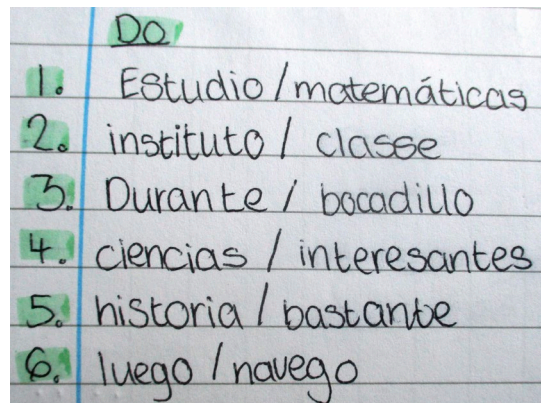 DO
1. Estudio / matemáticas
2. instituto / classe
3. Durante / bocadillo
4. ciencias / interesantes
5. historia / bastante
6. luego / navego